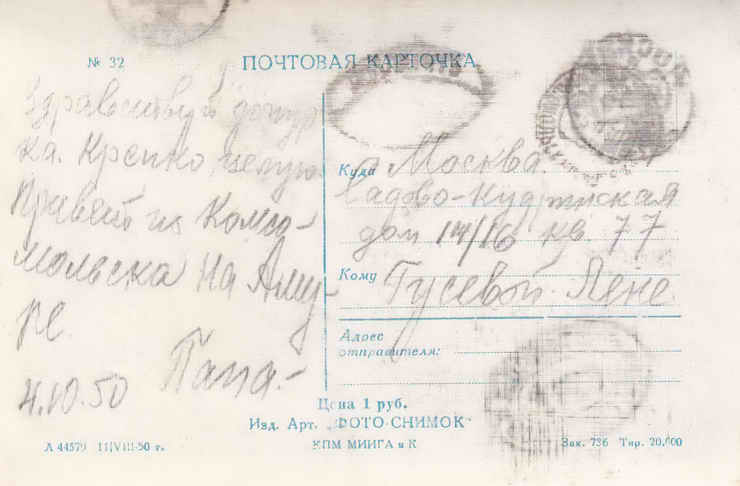 № 32
ПОЧТОВАЯ КАРТОЧКА
Здравствуй дочур-
ка. Крепко целую
Привет из Комсо-
мольска на Аму-
ре
Папа.-
4.10.50
Куда Москва.
Садово-Кудринская
дом 14/16 кв. 77
Кому Гусевой Лене
Адрес
отправителя:
Цена 1 руб.
Изд. Арт. „ФОТО-СНИМОК"
КПМ МИИГА и К
А 44579 11|VIII-50 г.
Зак. 736 Тир. 20,000